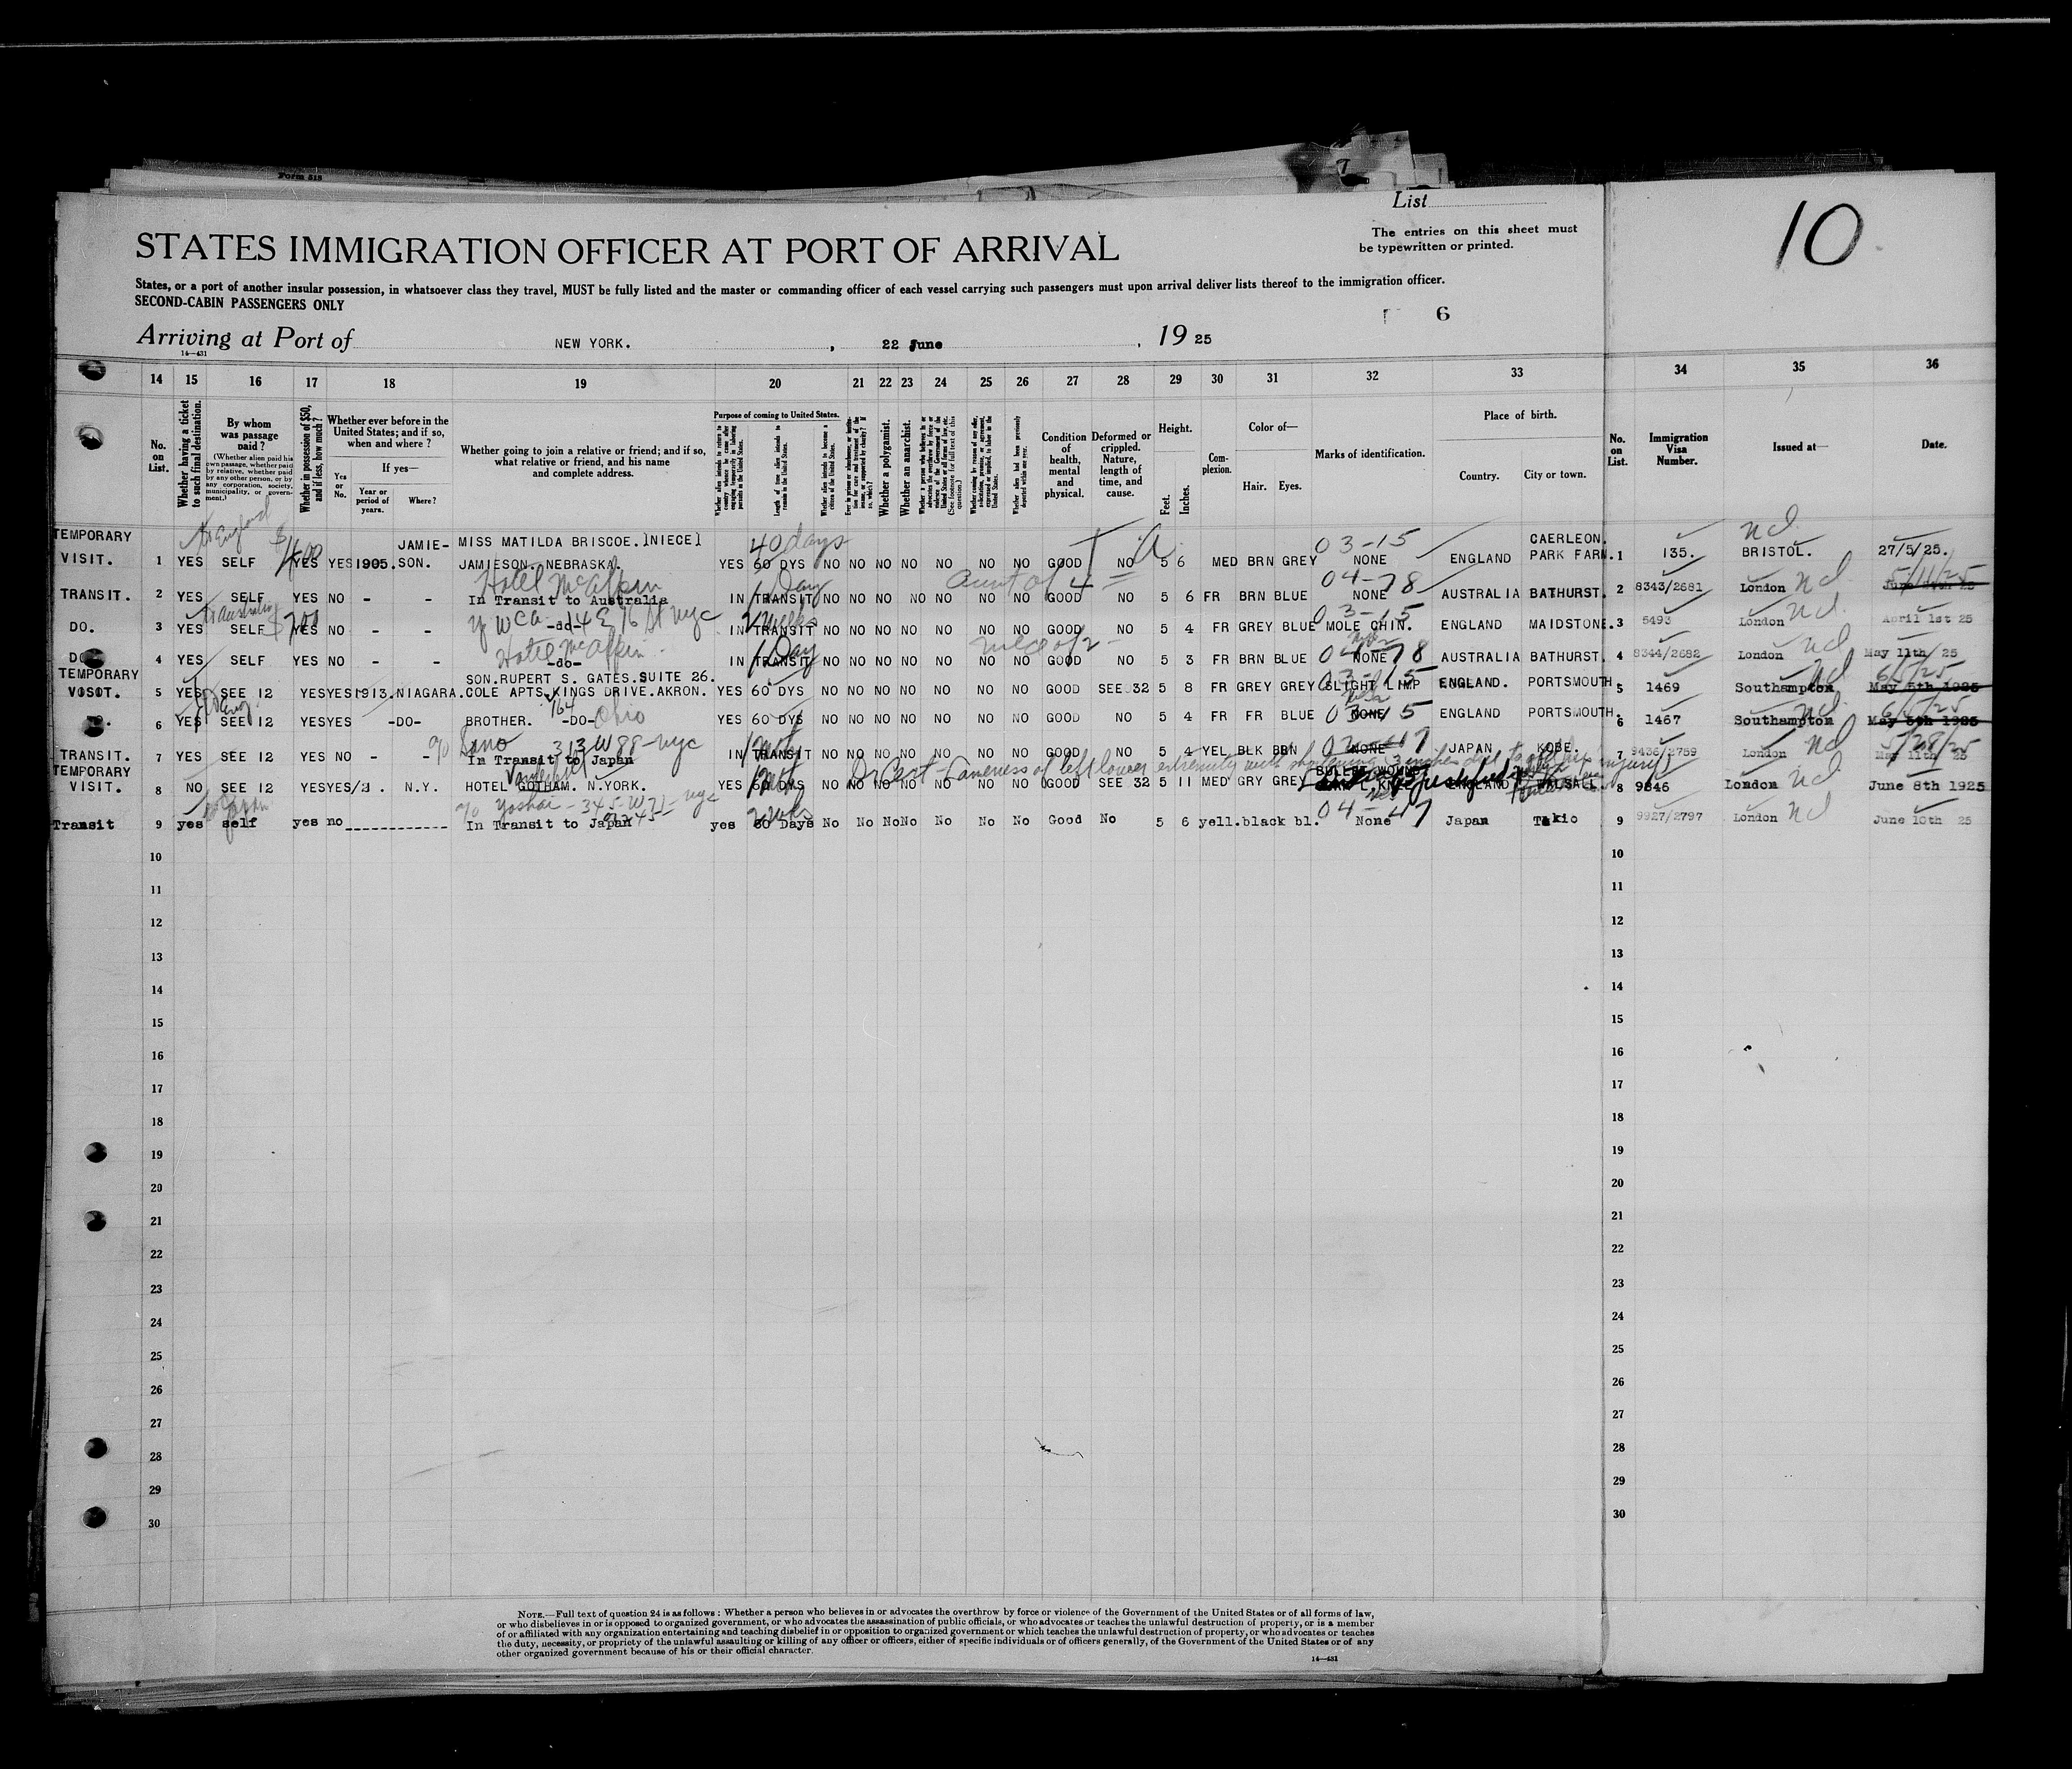 Form 518
7
List
10
The entries on this sheet must
be typewritten or printed.
STATES IMMIGRATION OFFICER AT PORT OF ARRIVAL
States, or a port of another insular possession, in whatsoever class they travel, MUST be fully listed and the master or commanding officer of each vessel carrying such passengers must upon arrival deliver lists thereof to the immigration officer.
SECOND-CABIN PASSENGERS ONLY
6
Arriving at Port of NEW YORK. , 22 June , 19 25
14—431
14 15 16 17 18 19 20 21 22 23 24 25 26 27 28 29 30 31 32 33 34 35 36
No. on List.
Whether having a ticket to such final destination.
By whom was passage paid?
(Whether alien paid his own passage, whether paid by relative, whether paid by any other person, or by any corporation, society, municipality, or government.)
Whether in possession of $50, and if less, how much?
Whether ever before in the United States; and if so, when and where?
If yes—
Yes or No.
Year or period of years.
Where?
Whether going to join a relative or friend; and if so, what relative or friend, and his name and complete address.
Purpose of coming to United States.
Whether alien intends to return to country whence he came after engaging temporarily in laboring pursuits in the United States.
Length of time alien intends to remain in the United States.
Whether alien intends to become a citizen of the United States.
Whether a polygamist.
Whether an anarchist.
Condition of health, mental and physical.
Deformed or crippled. Nature, length of time, and cause.
Height.
Feet. Inches.
Complexion.
Color of—
Hair. Eyes.
Marks of identification.
Place of birth.
Country. City or town.
No. on List.
Immigration Visa Number.
Issued at—
Date.
to England $400 40 days 03-15 nd
TEMPORARY JAMIE- MISS MATILDA BRISCOE.[NIECE] CAERLEON.
VISIT. 1 YES SELF YES YES 1905. SON. JAMIESON. NEBRASKA. YES 60 DYS NO NO NO NO NO NO NO GOOD NO 5 6 MED BRN GREY NONE ENGLAND PARK FARM. 1 135. BRISTOL. 27/5/25.
Hotel McAlpin 1 Day aunt of 4 04-78 nd 5/11/25
TRANSIT. 2 YES SELF YES NO - - In Transit to Australia IN TRANSIT NO NO NO NO NO NO NO GOOD NO 5 6 FR BRN BLUE NONE AUSTRALIA BATHURST. 2 8343/2681 London
to Australia $700 YWCA 14 E 16 St nyc 2 weeks 03-15 nd
DO. 3 YES SELF YES NO - - -do- IN TRANSIT NO NO NO NO NO NO NO GOOD NO 5 4 FR GREY BLUE MOLE CHIN. ENGLAND MAIDSTONE. 3 5493 London April 1st 25
Hotel McAlpin 1 Day niece of 2 04-78 nd
DO 4 YES SELF YES NO - - -do- IN TRANSIT NO NO NO NO NO NO NO GOOD NO 5 3 FR BRN BLUE NONE AUSTRALIA BATHURST. 4 8344/2682 London May 11th 25
TEMPORARY SON.RUPERT S. GATES.SUITE 26. 03-15 nd 6/5/25
VISIT. 5 YES SEE 12 YES YES 1913. NIAGARA. COLE APTS.KINGS DRIVE.AKRON. YES 60 DYS NO NO NO NO NO NO NO GOOD SEE 32 5 8 FR GREY GREY SLIGHT LIMP ENGLAND. PORTSMOUTH 5 1469 Southampton May 5th 1925
164 Ohio nd 6/5/25
DO. 6 YES SEE 12 YES YES -DO- BROTHER. -DO- YES 60 DYS NO NO NO NO NO NO NO GOOD NO 5 4 FR FR BLUE NONE ENGLAND PORTSMOUTH. 6 1467 Southampton May 5th 1925
313 W 88 - nyc nd 5/28/25
TRANSIT. 7 YES SEE 12 YES NO - - In Transit to Japan IN TRANSIT NO NO NO NO NO NO NO GOOD NO 5 4 YEL BLK BRN NONE JAPAN KOBE. 7 9436/2759 London May 11th 25
Dr Cert - Lameness of left lower extremity with shortening 3 inches due to old hip injury
TEMPORARY BULLET WOUND
VISIT. 8 NO SEE 12 YES YES N.Y. HOTEL GOTHAM. N.YORK. YES 60 DYS NO NO NO NO NO NO NO GOOD SEE 32 5 11 MED GRY GREY ENGLAND WALSALL. 8 9846 London nd June 8th 1925
to Japan c/o Yoshii - 345 W 71 - nyc 2 weeks 04-47
Transit 9 yes self yes no In Transit to Japan yes 60 Days No No No No No No No Good No 5 6 yell. black bl. None Japan Tokio 9 9927/2797 London nd June 10th 25
10 10
11 11
12 12
13 13
14 14
15 15
16 16
17 17
18 18
19 19
20 20
21 21
22 22
23 23
24 24
25 25
26 26
27 27
28 28
29 29
30 30
NOTE.—Full text of question 24 is as follows: Whether a person who believes in or advocates the overthrow by force or violence of the Government of the United States or of all forms of law,
or who disbelieves in or is opposed to organized government, or who advocates the assassination of public officials, or who advocates or teaches the unlawful destruction of property, or is a member
of or affiliated with any organization entertaining and teaching disbelief in or opposition to organized government or which teaches the unlawful destruction of property, or who advocates or teaches
the duty, necessity, or propriety of the unlawful assaulting or killing of any officer or officers, either of specific individuals or of officers generally, of the Government of the United States or of any
other organized government because of his or their official character.
14—431